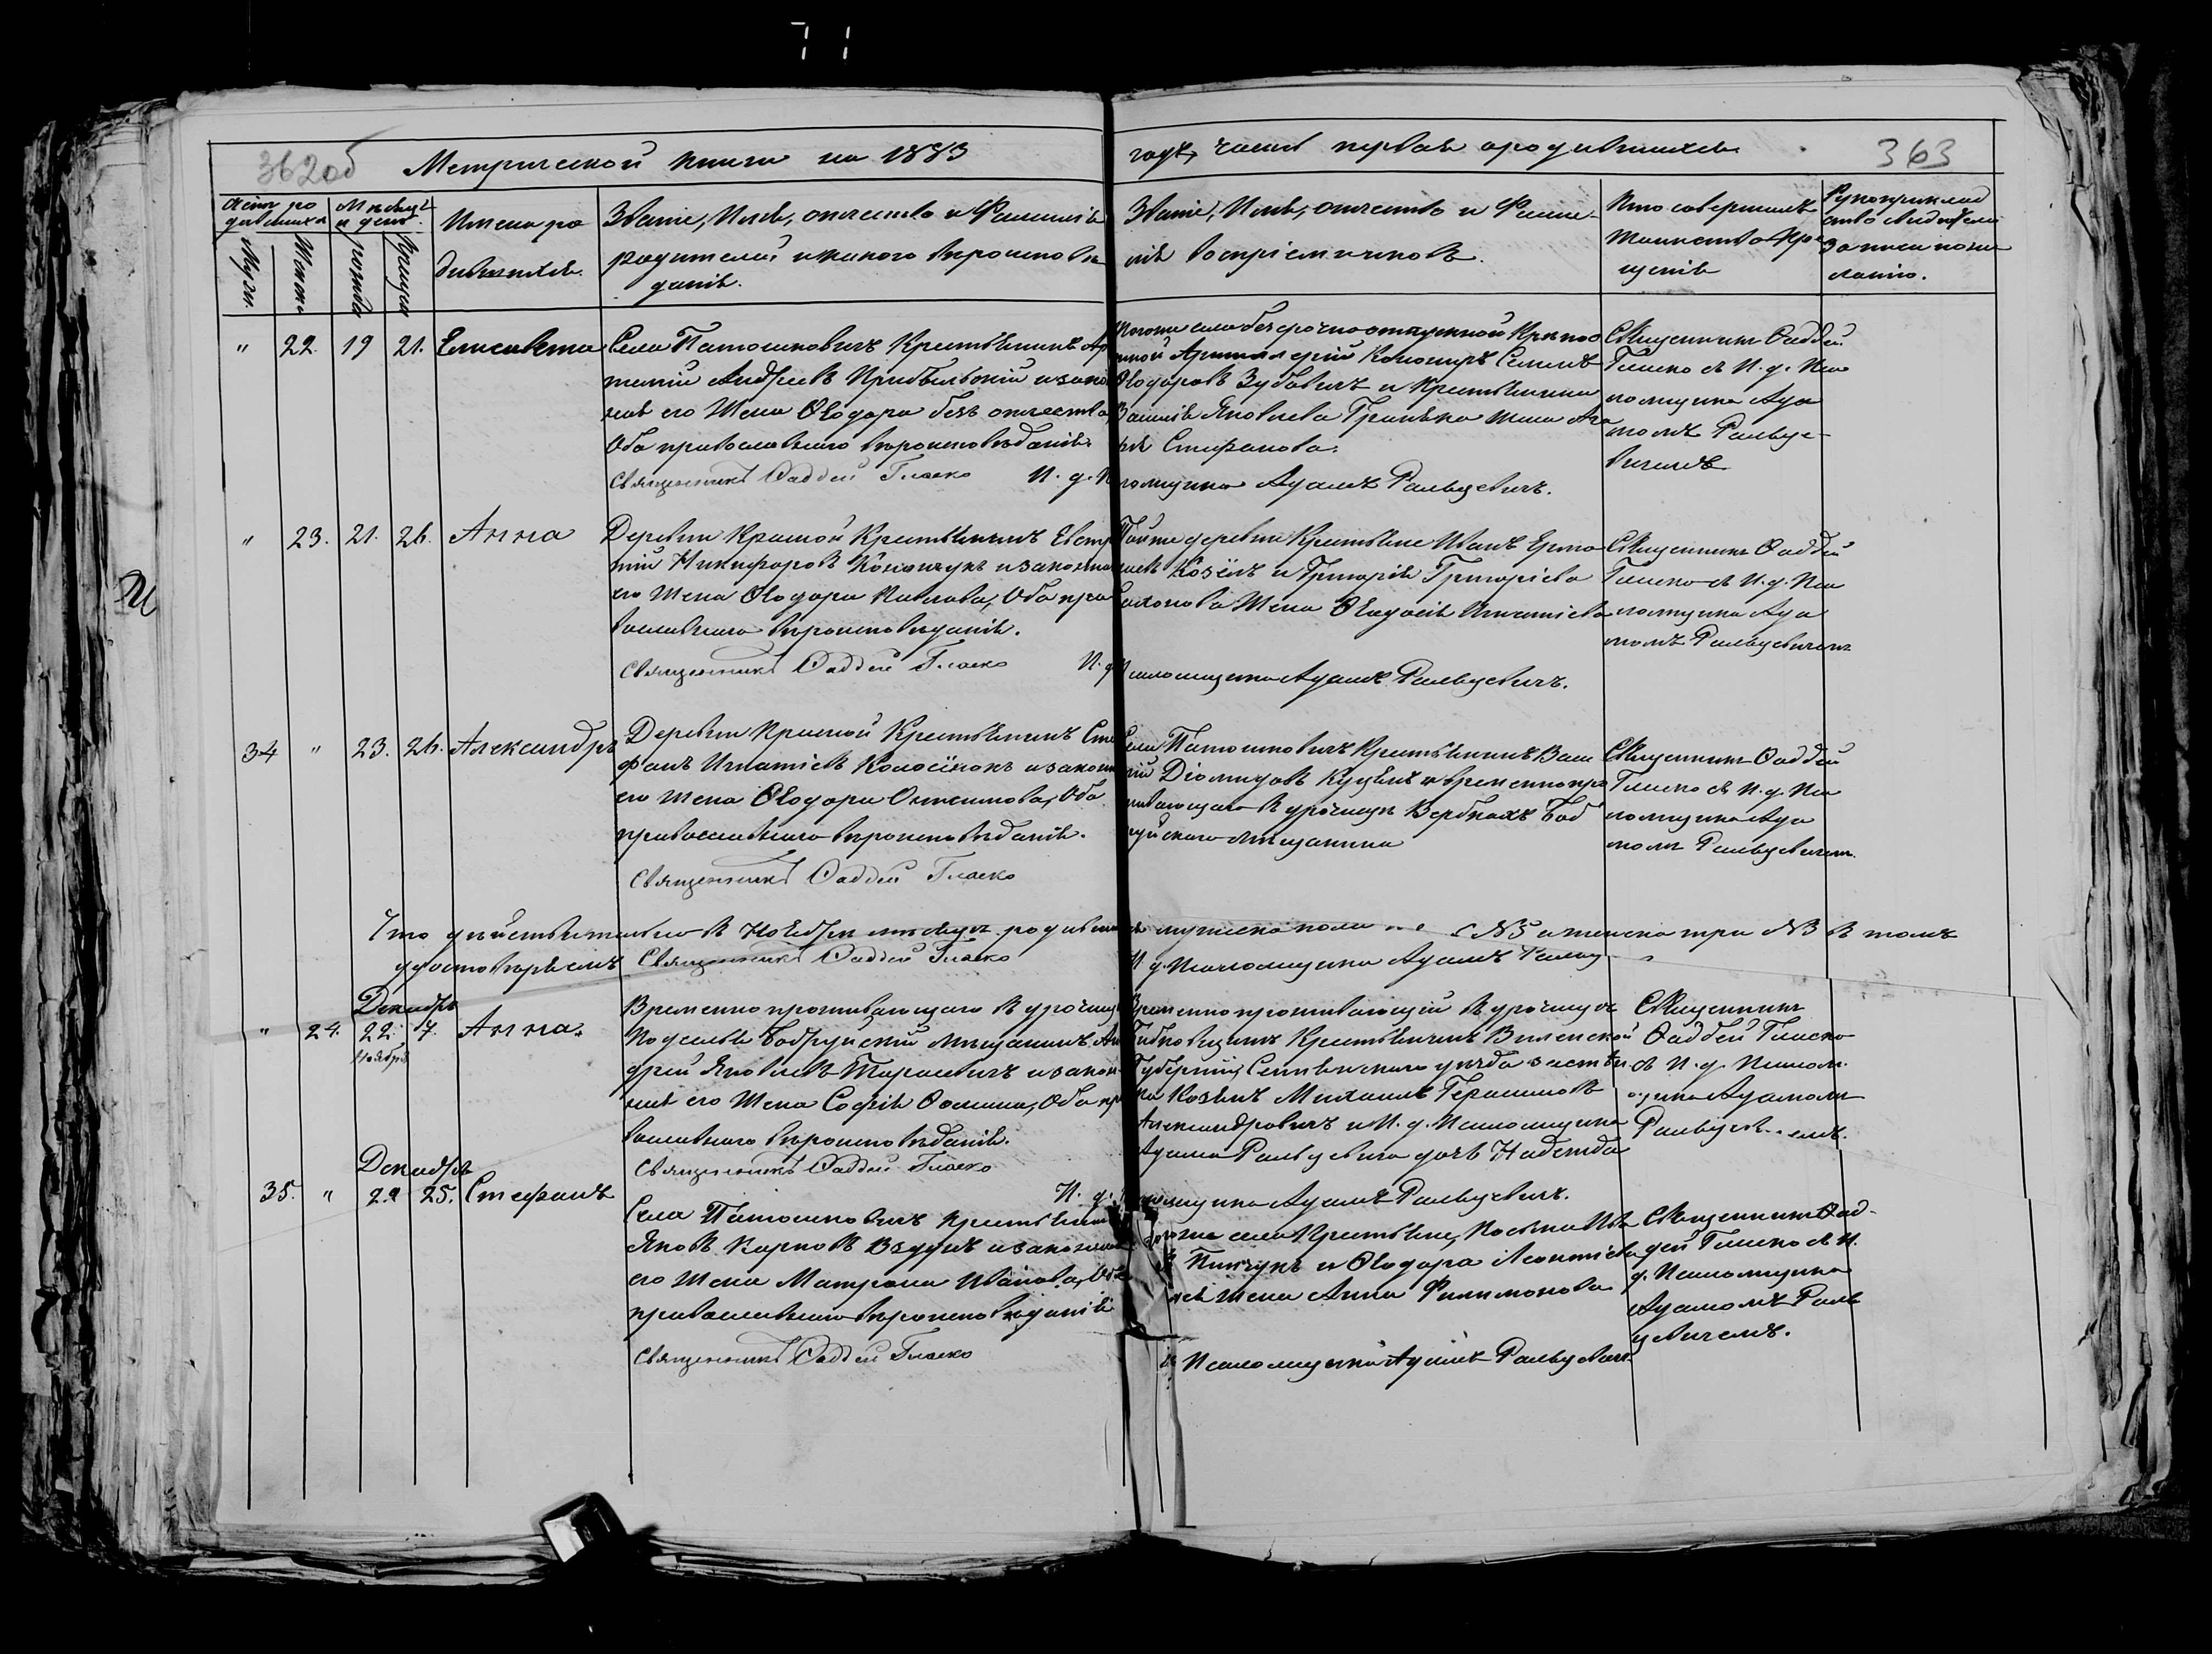 71
362об Метрической книги на 1883 годъ, часть первая о родившихся. 363
Счетъ родившихся
Мужеска
Женска
Мѣсяцъ и день
рожденія
крещенія
Имена родившихся.
Званіе, Имя, отчество и Фамилія
родителей и какого вѣроисповѣ
данія.
Званіе, Имя, отчество и Фами-
лія воспріемниковъ.
Кто совершалъ
таинство кре
щенія
Рукоприклад
ство свидѣтелей
записи по же
ланію.
" 22. 19 21. Елисавета
Села Патошковичъ Крестьянинъ Ар
темій Андреевъ Прибыльскій и закон
ная его Жена Ѳеодора безъ отчества,
Оба православнаго вѣроисповѣданія.
Священникъ Ѳаддей Гласко И. д. П
тогоже села безсрочноотпускной Крѣпос
тной Артиллеріи Семенъ
Ѳеодоровъ Зубовичъ и Крестьянина
Яковлева жена Ага
ѳія Стефанова.
саломщика Адамъ Ральцевичъ.
Священникъ Ѳаддей
Гласко съ И. д. Пса
ломщика Ада
момъ Ральце-
вичемъ
" 23. 21. 26. Анна
Деревни Красной Крестьянинъ Евста
ѳій Никифоровъ Конончукъ и законная
его Жена Ѳеодора Павлова, Оба пра
вославнаго вѣроисповѣданія.
Священникъ Ѳаддей Гласко И. д.
Тойже деревни Крестьяне Иванъ Ермо
лаевъ Козёлъ и Григорія Григоріева
Жена Ѳеодосія Игнатіева
Псаломщика Адамъ Ральцевичъ.
Священникъ Ѳаддей
Гласко съ И. д. Пса
ломщика Ада
момъ Ральцевичемъ
34 " 23. 26. Александръ
Деревни Красной Крестьянинъ Сте
фанъ Игнатіевъ и законная
его жена Ѳеодора Онисимова, Оба
православнаго вѣроисповѣданія.
Священникъ Ѳаддей Гласко
Села Патошковичъ Крестьянинъ Васи
лій Діомидовъ и временно про
живающаго въ урочищѣ Вербкахъ Боб
руйскаго мѣщанина
Священникъ Ѳаддей
Гласко съ И. д. Пса
ломщика Ада
момъ Ральцевичемъ.
Что дѣйствительно въ Ноябрѣ мѣсяцѣ родившихся мужеска пола №5 а женска три №3 въ томъ
удостовѣряемъ Священникъ Ѳаддей Гласко И. д. Псаломщика Адамъ
Декабрь
" 24. 22. 7. Анна.
Ноября
Временно проживающаго въ урочищѣ
Подселье Бобруйскій мѣщанинъ Ан
дрей Яковлевъ Тарасевичъ и закон
ная его Жена Софія Ѳомина, Оба пра
вославнаго вѣроисповѣданія.
Священникъ Ѳаддей Гласко
Временно проживающій въ урочищѣ
Крестьянинъ Виленской
Губерніи, уѣзда
Михаилъ Герасимовъ
Александровичъ и И. д. Псаломщика
Адама Ральцевича дочь Надежда
И. д. Псаломщика Адамъ Ральцевичъ.
Священникъ
Ѳаддей Гласко
съ И. д. Псалом
щика Адамомъ
Декабрь
35. " 22 25. Стефанъ
Села Патошковичъ крестьянинъ
Яковъ Карповъ и законная
его Жена Матрона Иванова, Оба
православнаго вѣроисповѣданія
Священникъ Ѳаддей Гласко
тогоже села Крестьяне, Косьма
Пинчукъ и Ѳеодора Леонтіева
жена Анна Филимонова
Псаломщика Адамъ Ральцевичъ
Священникъ Ѳад-
дей Гласко съ И.
д. Псаломщика
Адамомъ Раль
цевичемъ.